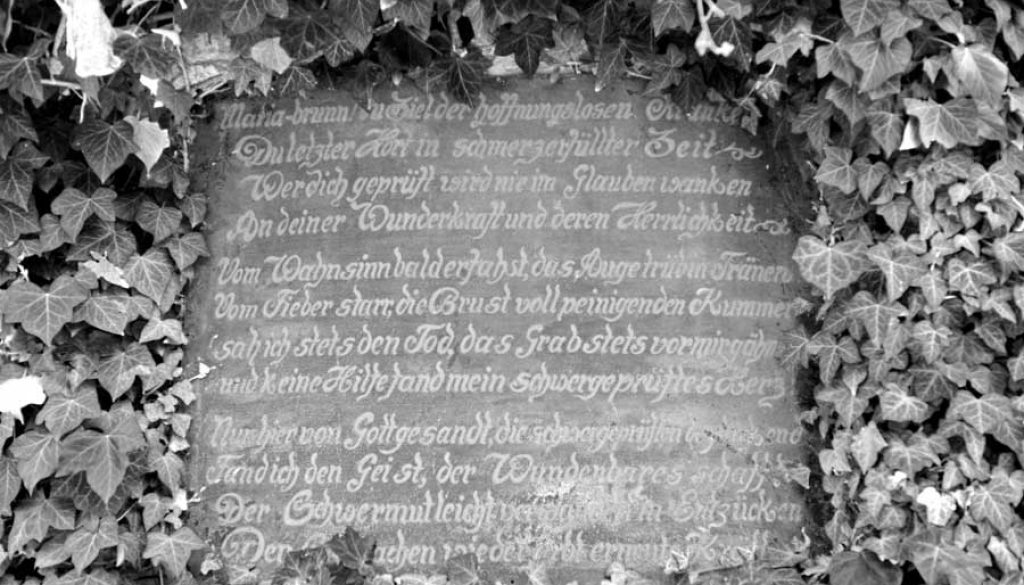 Maria-brunn! du Ziel der hoffnungslosen Kranken
Du letzter Hort in schmerzerfüllter Zeit
Wer dich geprüft wird nie im Glauben wanken
An deiner Wunderkraft und deren Herrlichkeit
Vom Wahnsinn bald erfaßst, das Auge trüb in Tränen
Vom Fieber starr, die Brust voll peinigenden Kummer
sah ich stets den Tod, das Grab stets vor mir gähn
und keine Hilfe fand mein schwergeprüftes Herz
Nur hier von Gott gesandt, die schwergeprüften
Fand ich den Geist, der Wunderbares schafft
Der Schwermut leicht in Entzücken
Der wieder erneute Kraft